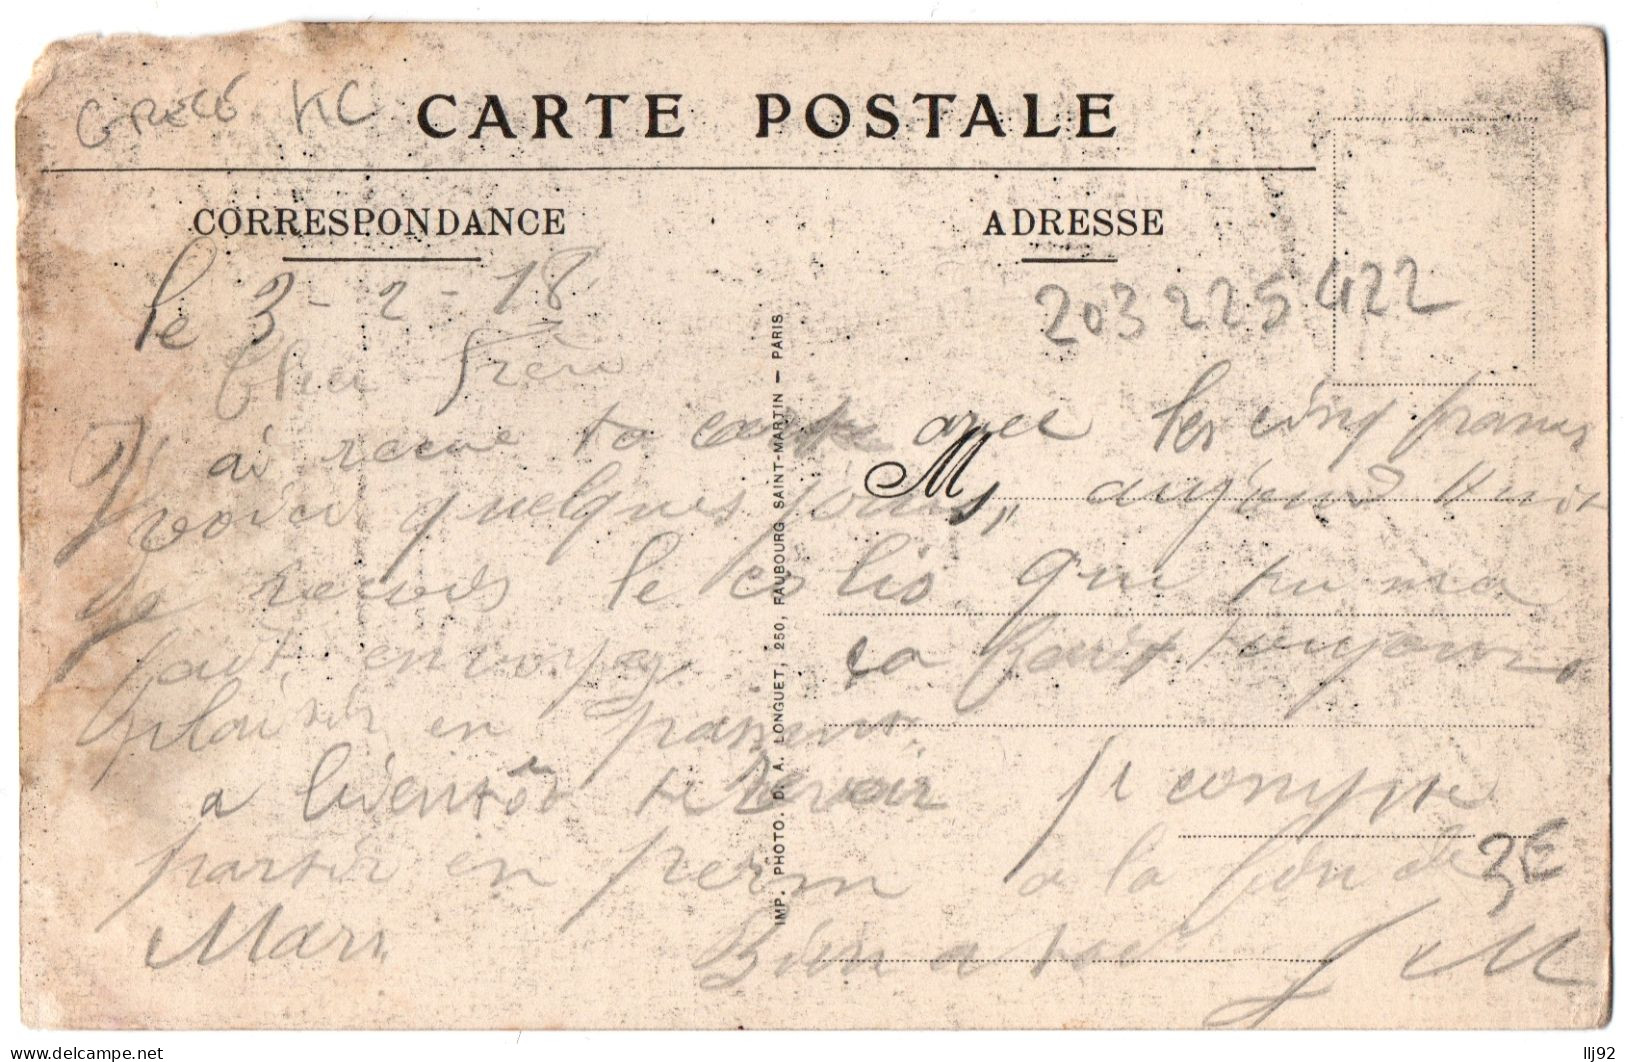 GRECE KC
CARTE POSTALE
CORRESPONDANCE
ADRESSE
le 3 - 2 - 18
203 225 422
Cher frère
J'ai recue ta carte avec les cinq francs
voici quelques jours, aujourd huit
Je recois le colis que tu ma
fait envoyez sa fait toujours
plaisir en passant
a bientôt te revoir je compte
partir en perm a la fin de
3€
Mars Bien a toi
M
IMP. PHOTO. D. A. LONGUET, 250, FAUBOURG SAINT-MARTIN — PARIS
llj92